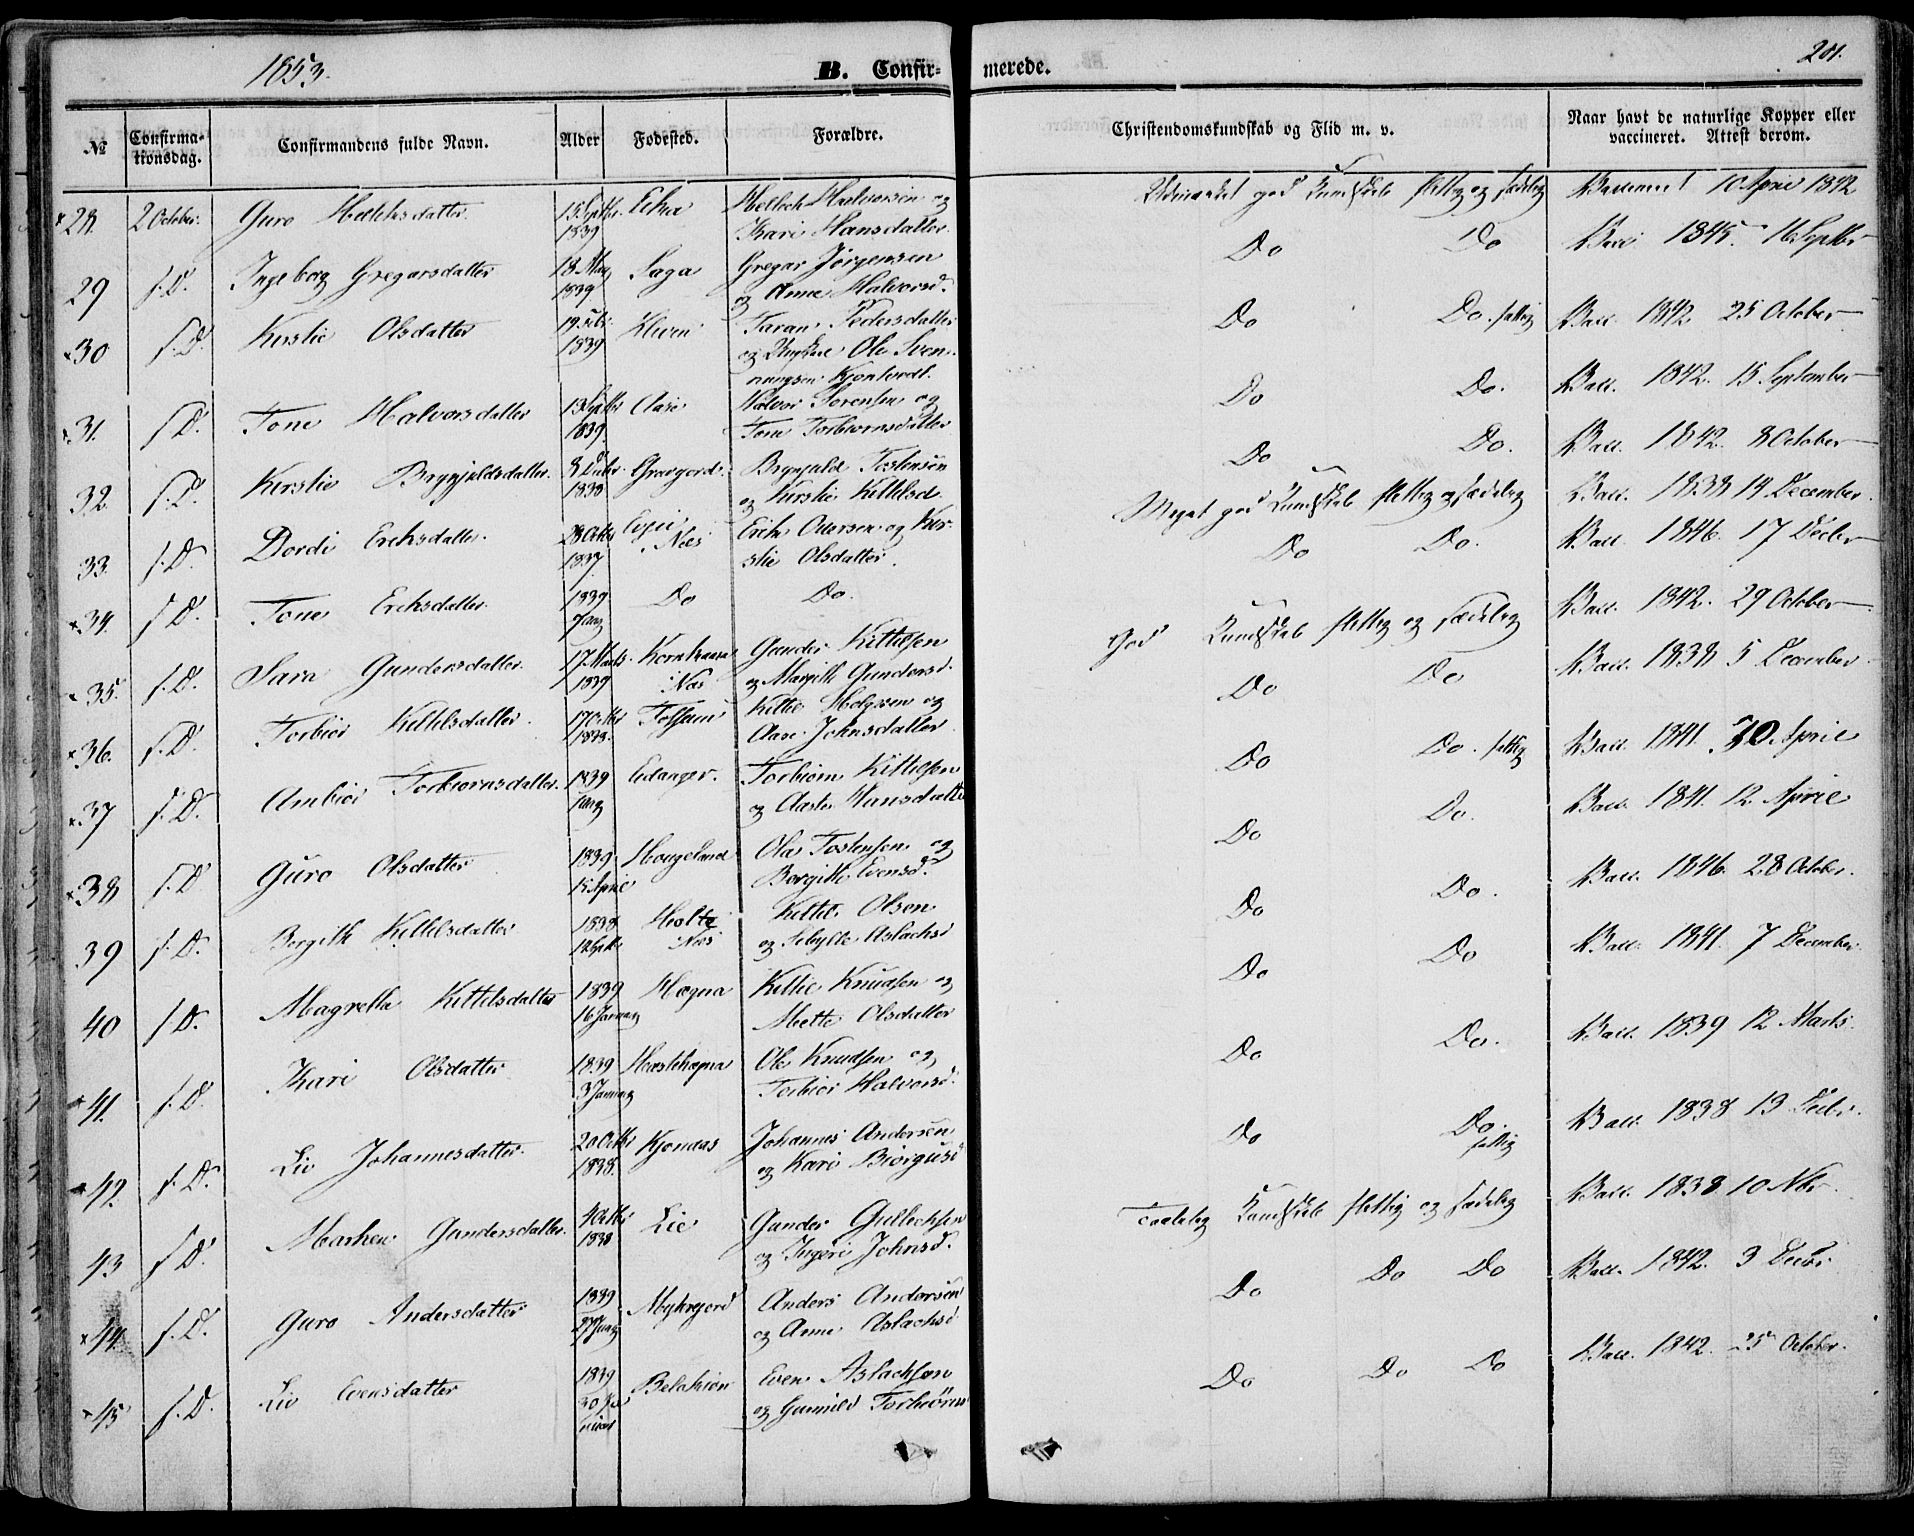 1853.
B. Confir-
merede.
201.
№
Confirma-
tionsdag.
Confirmandens fulde Navn.
Alder
Fødested.
Forældre.
Christendomskundskab og Flid m. v.
Naar havt de naturlige Kopper eller
vaccineret. Attest derom.
28. 2 October. Guro 1839 Halvorsen og
Kari Hansdatter
god Kundskab flittig og sædelig 10 April 1842
29 f. D. Ingeborg Gregarsdatter 18 1839 Saga Gregar Jørgensen
og Anne Halvorsd.
Do Do Vacc. 1845. 16 Septbr
30 f. D. Kirstie Olsdatter 19 1839 Taran Pedersdatter
og Ole Sven-
nungsen
Do Do. flittig Vacc. 1842 25 October
31. f. D. Tone Halvorsdatter 1839 Aase Halvor Sørensen og
Tone Torbiørnsdatter
Do Do. Vacc. 1842. 15 September
32. f. D. Kirstie Brynjuldsdatter. 8 1838 Gravgord. Brynjuld Tostensen
og Kirstie Kittelsd.
Do Do. Vacc. 1842. 8 October
33. f. D. Dordi Erichsdatter. 1837 Næs Erich Olversen og Kir-
stie Olsdatter.
Meget god Kundskab flittig og sædelig Vacc. 1838 14 December.
34. f. D. Tone Erichsdatter. 1839 Do Do.
Do Do. Vacc. 1846. 17 Decbr
35. f. D. Sara Gundersdatter. 17 Marts. 1839 Næs Gunder Kittilsen
og Margith Gundersd.
God Kundskab flittig og sædelig Vacc. 1842. 29 October
36. f. D. Torbiør Kittelsdatter. 17 Octbr Kittil
Aase Johnsdatter
Do Do Vacc. 1838 5 December
37 f. D. Ambiør Torbiørnsdatter. 1839 Eidanger. Torbiørn Kittilsen
og Aaste Hansdatter
Do Do. flittig Vacc. 1841. 30 April
38 f. D. Guro Olsdatter 1839 15 April Hougeland Ola Tostensen og
Borgith Evensd.
Do Do. Vacc. 1841. 12 April
39 f. D. Bergith Kittelsdatter 1838 Holte Næs Kittil Olsen
og Sebylle Aslachsd
Do Do. Vacc. 1846. 28 October.
40 f. D. Magretha Kittelsdatter 1839 16 Januar Høgna Kittil Knudsen og
Mette Olsdatter
Do Do Vacc. 1841. 7 December.
41. f. D. Kari Olsdatter 1839 3 Januar Ole Knudsen og
Torbiør Halvorsd.
Do Do. Vacc. 1839 12 Marts.
42. f. D. Liv Johannesdatter. 20 Octbr 1838. Kjondas Johannes Andersen
og Kari
Do Do. flittig Vacc. 1838 13 Decbr.
43 f. D. Maren Gundersdatter. 4 Octbr 1838 Lie Gunder Gullechsen
og Ingeri Johnsd.
Taalelig Kundskab flittig og sædelig Vacc. 1838 10 Nbr.
44. f. D. Guro Andersdatter 1839 27 Myhregord Anders Andersen
og Anne Aslachsd
Do Do Do Vacc. 1842. 3 Decbr
45 f. D. Liv Evensdatter 1839 30 Even Aslachsen
og Gunnild Torbiørns
Do Do Do Vacc. 1842. 25 October.